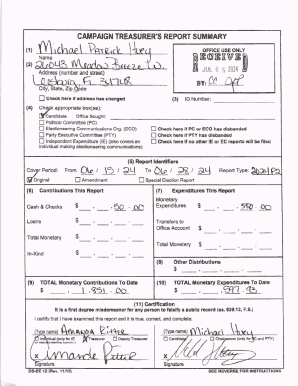 CAMPAIGN TREASURER'S REPORT SUMMARY
(1) Michael Patrick Huey
Name
(2) 26043 Meadow Breeze Ln.
Address (number and street)
Leesburg, FL 31748
City, State, Zip Code
OFFICE USE ONLY
RECEIVED
JUL 2024
BY:
Check here if address has changed
(3) ID Number:
(4) Check appropriate box(es):
Candidate Office Sought:
Political Committee (PC)
Electioneering Communications Org. (ECO)
Party Executive Committee (PTY)
Independent Expenditure (IE) (also covers an
individual making electioneering communications)
Check here if PC or ECO has disbanded
Check here if PTY has disbanded
Check here if no other IE or EC reports will be filed
(5) Report Identifiers
Cover Period: From 06 / 15 / 24 To 06 / 28 / 24 Report Type: 2024P2
Original Amendment Special Election Report
(6) Contributions This Report
Cash & Checks $ 50.00
Loans $
Total Monetary $
In-Kind $
(7) Expenditures This Report
Monetary
Expenditures $ 550.00
Transfers to
Office Account $
Total Monetary $
(8) Other Distributions
$
(9) TOTAL Monetary Contributions To Date
$ 1,851.00
(10) TOTAL Monetary Expenditures To Date
$ 597.93
(11) Certification
It is a first degree misdemeanor for any person to falsify a public record (ss. 839.13, F.S.)
I certify that I have examined this report and it is true, correct, and complete:
(Type name) Amanda Ritter
Individual (only for IE Treasurer Deputy Treasurer
(Type name) Michael Huey
Candidate Chairperson (only for PC and PTY)
X Amanda Ritter
Signature
X
Signature
DS-DE 12 (Rev. 11/13)
SEE REVERSE FOR INSTRUCTIONS